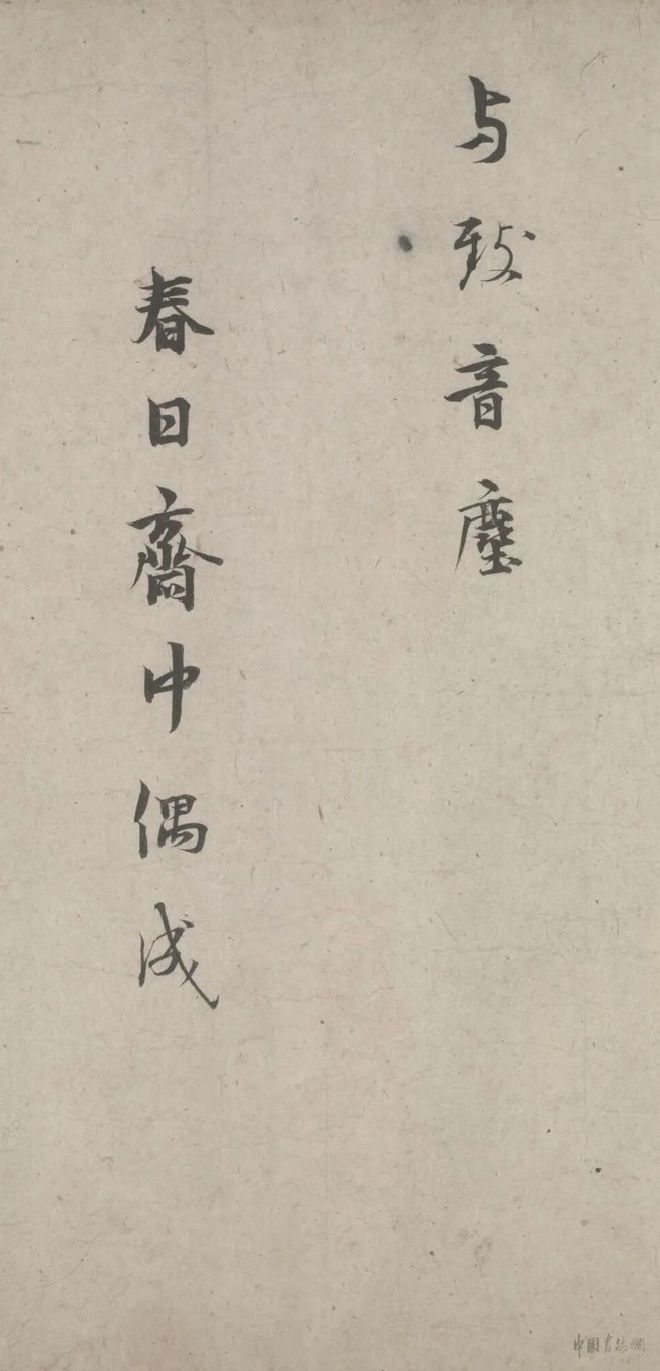 与致音塵
春日齋中偶成
中國書法網